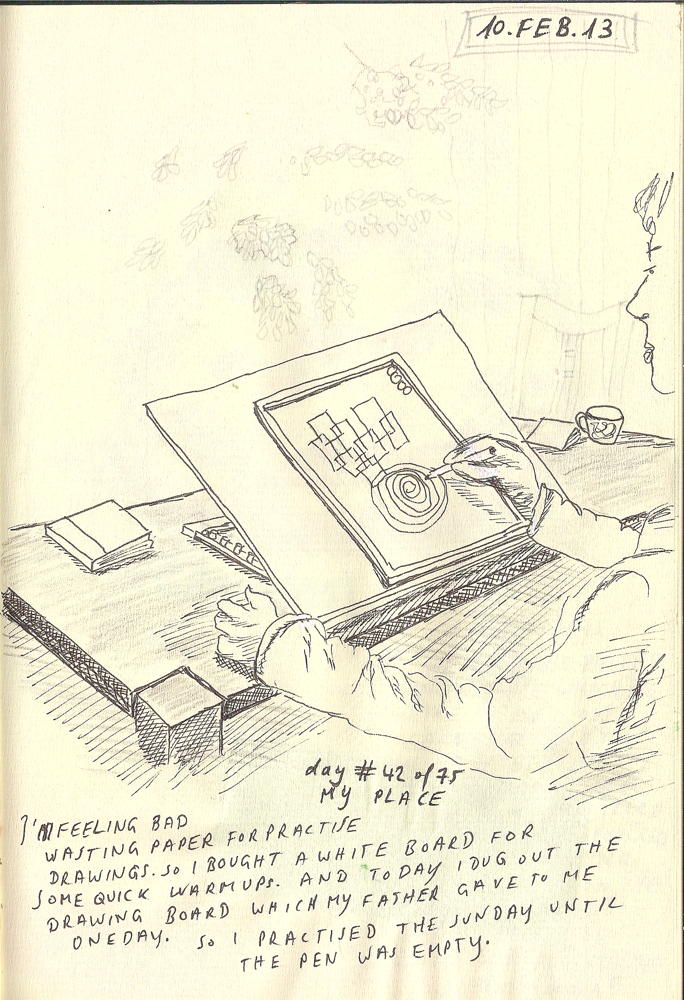 10.FEB.13
day # 42 of 75
MY PLACE
I'M FEELING BAD
WASTING PAPER FOR PRACTISE
DRAWINGS. SO I BOUGHT A WHITE BOARD FOR
SOME QUICK WARMUPS. AND TODAY I DUG OUT THE
DRAWING BOARD WHICH MY FATHER GAVE TO ME
ONEDAY. SO I PRACTISED THE SUNDAY UNTIL
THE PEN WAS EMPTY.